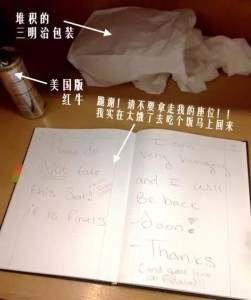 堆积的
三明治包装
美国版
红牛
跪谢！请不要拿走我的座位！！
我实在太饿了去吃个饭马上回来
Please do
Not take
this Seat
it is finals
I am
very hungry
and I will
Be back
- Soon!
- Thanks